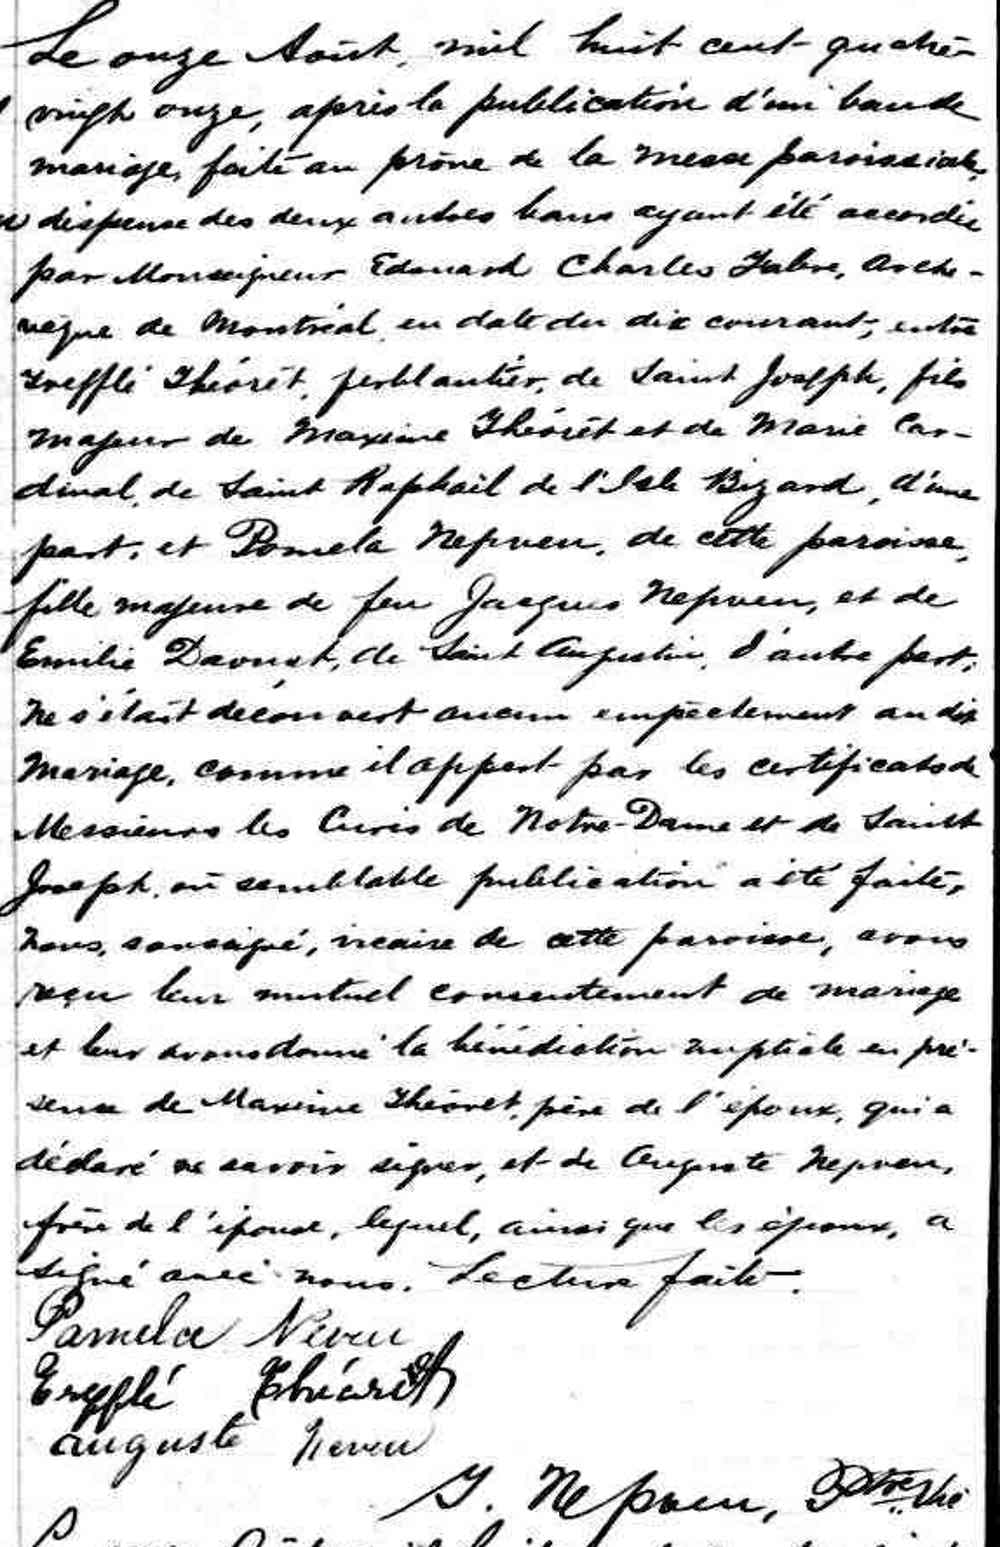 Le onze Août, mil huit cent quatre-
vingt onze, après la publication d'un ban de
mariage, faite au prône de la messe paroissiale,
dispense des deux autres bans ayant été accordée
par Monseigneur Edouard Charles Fabre, Arche-
vêque de Montréal, en date du dix courant, entre
Trefflé Théorêt, ferblantier, de Saint Joseph, fils
majeur de Maxime Théorêt et de Marie Car-
dinal, de Saint Raphaël de l'Isle Bizard, d'une
part, et Pomela Nepveu, de cette paroisse,
fille majeure de feu Jacques Nepveu, et de
Emilie Daoust, de Saint Augustin, d'autre part;
ne s'étant découvert aucun empêchement au dit
Mariage, comme il appert par les certificats de
Messieurs les Curés de Notre-Dame et de Saint
Joseph, où semblable publication a été faite,
nous, soussigné, vicaire de cette paroisse, avons
reçu leur mutuel consentement de mariage
et leur avons donné la bénédiction nuptiale en pré-
sence de Maxime Théoret, père de l'époux, qui a
déclaré ne savoir signer, et de Auguste Nepveu,
frère de l'épouse, lequel, ainsi que les époux, a
signé avec nous. Lecture faite.
Pamela Neveu
Trefflé Théorêt
auguste Neveu
J. Nepveu, Ptre Vic